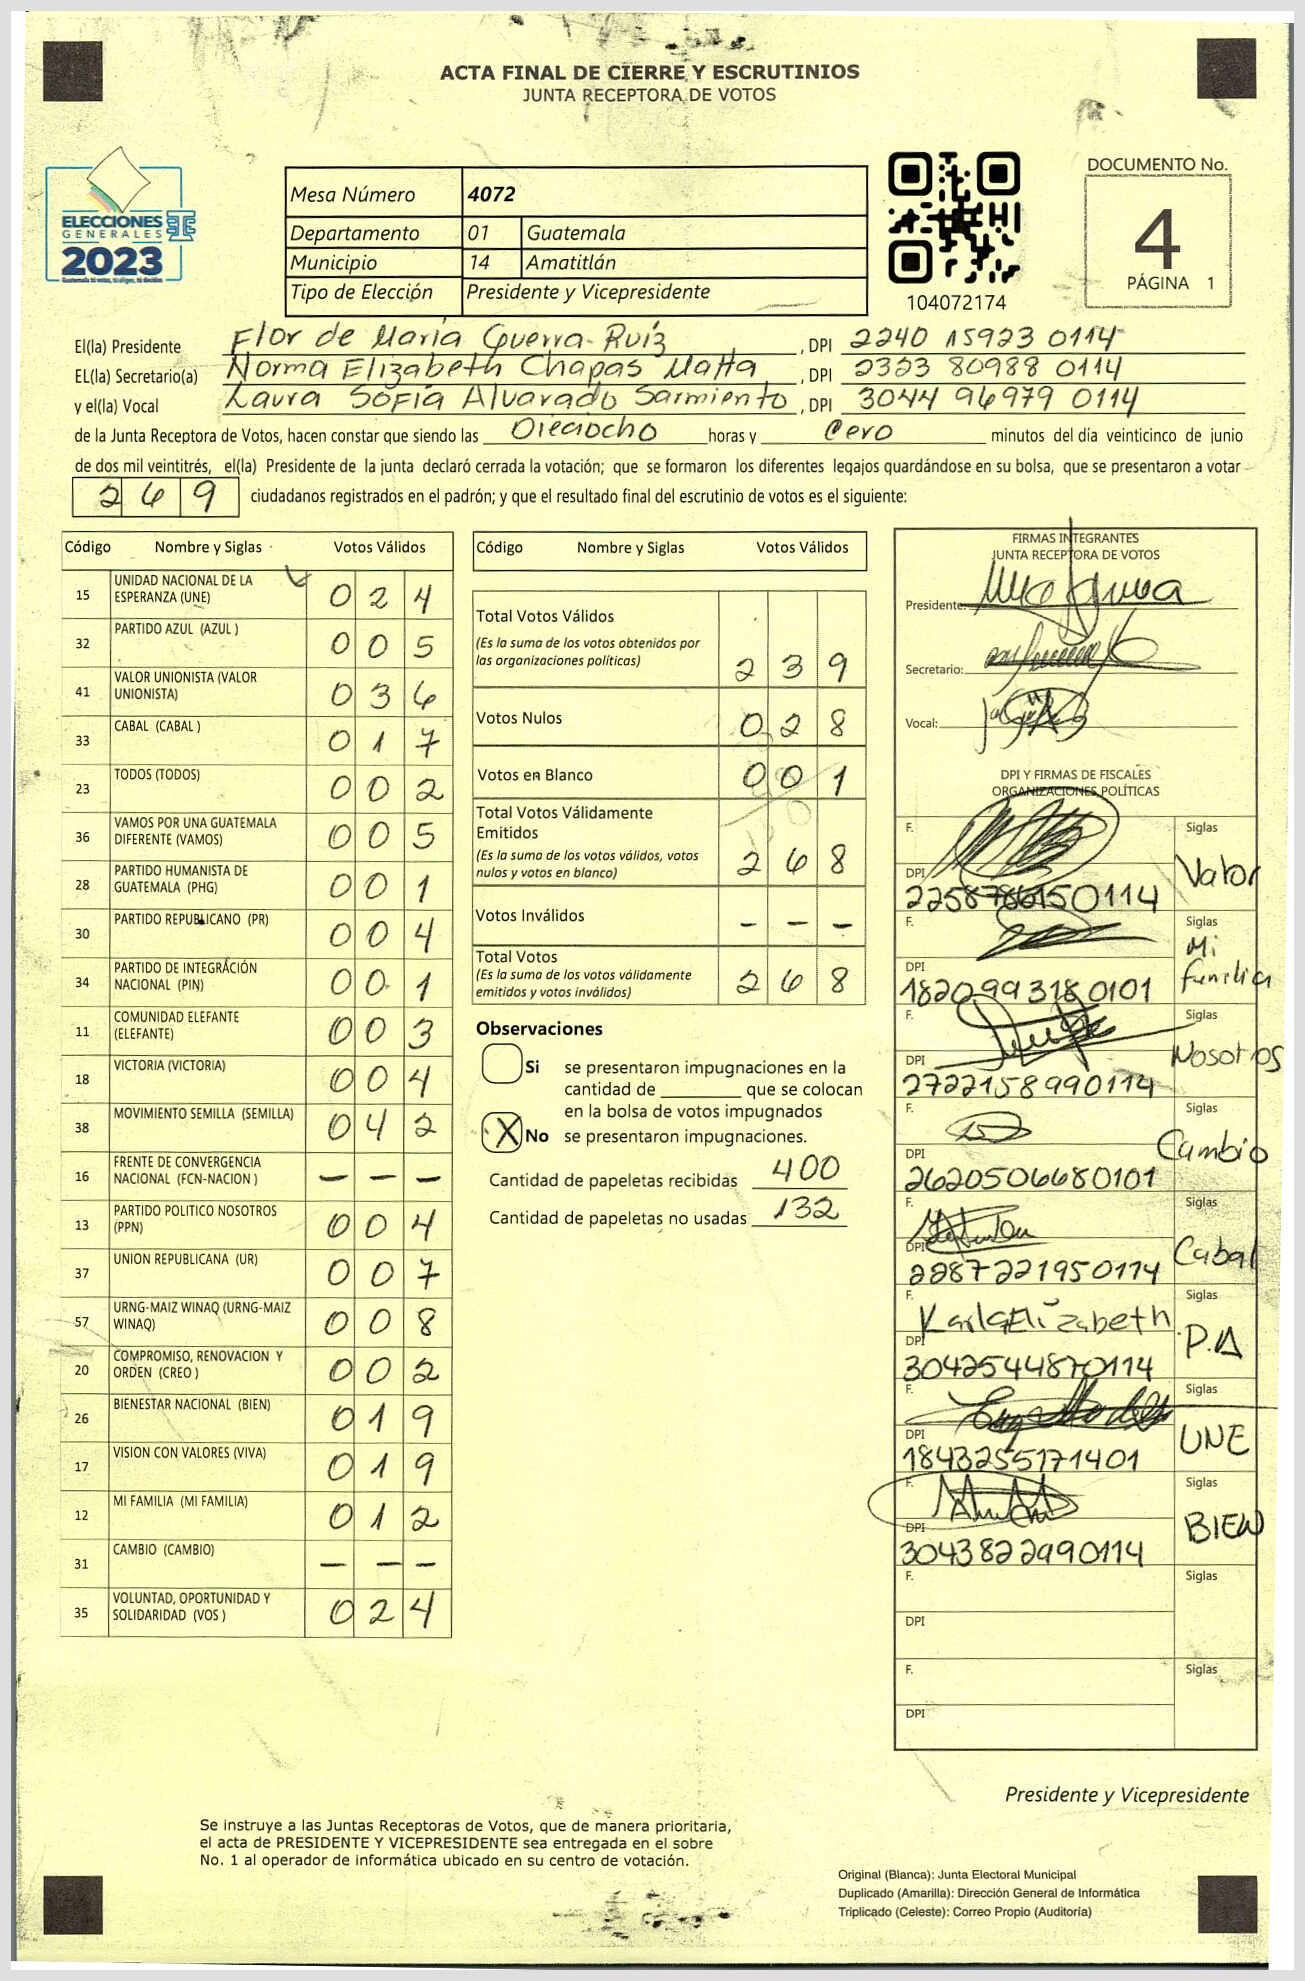 ACTA FINAL DE CIERRE Y ESCRUTINIOS
JUNTA RECEPTORA DE VOTOS
ELECCIONES
GENERALES
2023
Mesa Número 4072
Departamento 01 Guatemala
Municipio 14 Amatitlán
Tipo de Elección Presidente y Vicepresidente
104072174
DOCUMENTO No.
4
PÁGINA 1
El(la) Presidente Flor de María Guerra Ruíz, DPI 2240 15923 0114
EL(la) Secretario(a) Norma Elizabeth Chapas Matta, DPI 2323 80988 0114
y el(la) Vocal Laura Sofía Alvarado Sarmiento, DPI 3044 96979 0114
de la Junta Receptora de Votos, hacen constar que siendo las Dieciocho horas y Cero minutos del día veinticinco de junio
de dos mil veintitrés, el(la) Presidente de la junta declaró cerrada la votación; que se formaron los diferentes legajos guardándose en su bolsa, que se presentaron a votar
269 ciudadanos registrados en el padrón; y que el resultado final del escrutinio de votos es el siguiente:
Código Nombre y Siglas Votos Válidos
15 UNIDAD NACIONAL DE LA ESPERANZA (UNE) 024
32 PARTIDO AZUL (AZUL ) 005
41 VALOR UNIONISTA (VALOR UNIONISTA) 036
33 CABAL (CABAL ) 017
23 TODOS (TODOS) 002
36 VAMOS POR UNA GUATEMALA DIFERENTE (VAMOS) 005
28 PARTIDO HUMANISTA DE GUATEMALA (PHG) 001
30 PARTIDO REPUBLICANO (PR) 004
34 PARTIDO DE INTEGRACIÓN NACIONAL (PIN) 001
11 COMUNIDAD ELEFANTE (ELEFANTE) 003
18 VICTORIA (VICTORIA) 004
38 MOVIMIENTO SEMILLA (SEMILLA) 042
16 FRENTE DE CONVERGENCIA NACIONAL (FCN-NACION ) - - -
13 PARTIDO POLITICO NOSOTROS (PPN) 004
37 UNION REPUBLICANA (UR) 007
57 URNG-MAIZ WINAQ (URNG-MAIZ WINAQ) 008
20 COMPROMISO, RENOVACION Y ORDEN (CREO ) 002
26 BIENESTAR NACIONAL (BIEN) 019
17 VISION CON VALORES (VIVA) 019
12 MI FAMILIA (MI FAMILIA) 012
31 CAMBIO (CAMBIO) - - -
35 VOLUNTAD, OPORTUNIDAD Y SOLIDARIDAD (VOS ) 024
Código Nombre y Siglas Votos Válidos
Total Votos Válidos
(Es la suma de los votos obtenidos por
las organizaciones políticas) 239
Votos Nulos 028
Votos en Blanco 001
Total Votos Válidamente
Emitidos
(Es la suma de los votos válidos, votos
nulos y votos en blanco) 268
Votos Inválidos - - -
Total Votos
(Es la suma de los votos válidamente
emitidos y votos inválidos) 268
Observaciones
Si se presentaron impugnaciones en la
cantidad de ________ que se colocan
en la bolsa de votos impugnados
X No se presentaron impugnaciones.
Cantidad de papeletas recibidas 400
Cantidad de papeletas no usadas 132
FIRMAS INTEGRANTES
JUNTA RECEPTORA DE VOTOS
Presidente:
Secretario:
Vocal:
DPI Y FIRMAS DE FISCALES
ORGANIZACIONES POLÍTICAS
F. Siglas
DPI 2258786150114 Valor
F. Siglas
DPI 1820993180101 Mi familia
F. Siglas
DPI 2722158990114 Nosotros
F. Siglas
DPI 2620506680101 Cambio
F. Siglas
DPI 2287221950114 Cabal
F. Karla Elizabeth Siglas
DPI 3042544870114 P.A
F. Siglas
DPI 1843255171401 UNE
F. Siglas
DPI 3043822990114 BIEN
F. Siglas
DPI
F. Siglas
DPI
Presidente y Vicepresidente
Se instruye a las Juntas Receptoras de Votos, que de manera prioritaria,
el acta de PRESIDENTE Y VICEPRESIDENTE sea entregada en el sobre
No. 1 al operador de informática ubicado en su centro de votación.
Original (Blanca): Junta Electoral Municipal
Duplicado (Amarilla): Dirección General de Informática
Triplicado (Celeste): Correo Propio (Auditoría)